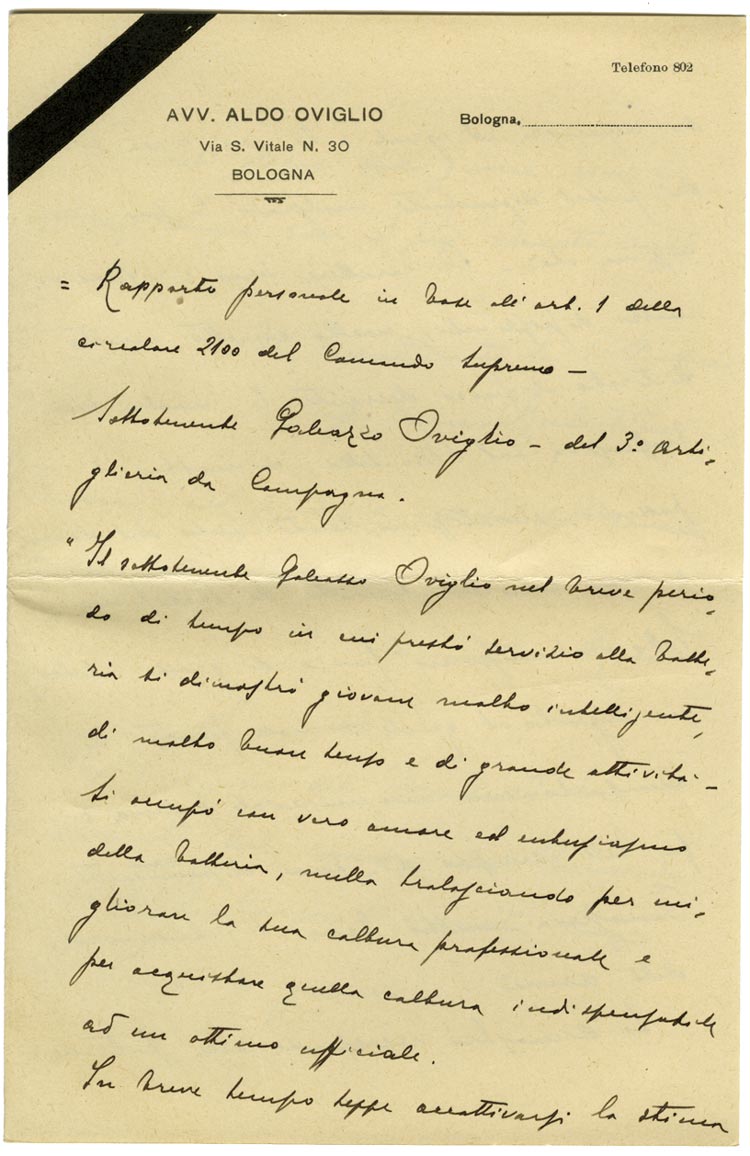 Telefono 802
AVV. ALDO OVIGLIO
Via S. Vitale N. 30
BOLOGNA
Bologna,
= Rapporto personale in base all'art. 1 della
circolare 2100 del Comando Supremo —
Sottotenente Galeazzo Oviglio – del 3º Arti=
glieria da Campagna.
"Il sottotenente Galeazzo Oviglio nel breve perio=
do di tempo in cui prestò servizio alla batte=
ria si dimostrò giovane molto intelligente,
di molto buon senso e di grande attività –
Si occupò con vero amore ed entusiasmo
della batteria, nulla tralasciando per mi=
gliorare la sua coltura professionale e
per acquistare quella coltura indispensabile
ad un ottimo ufficiale.
In breve tempo seppe accattivarsi la stima